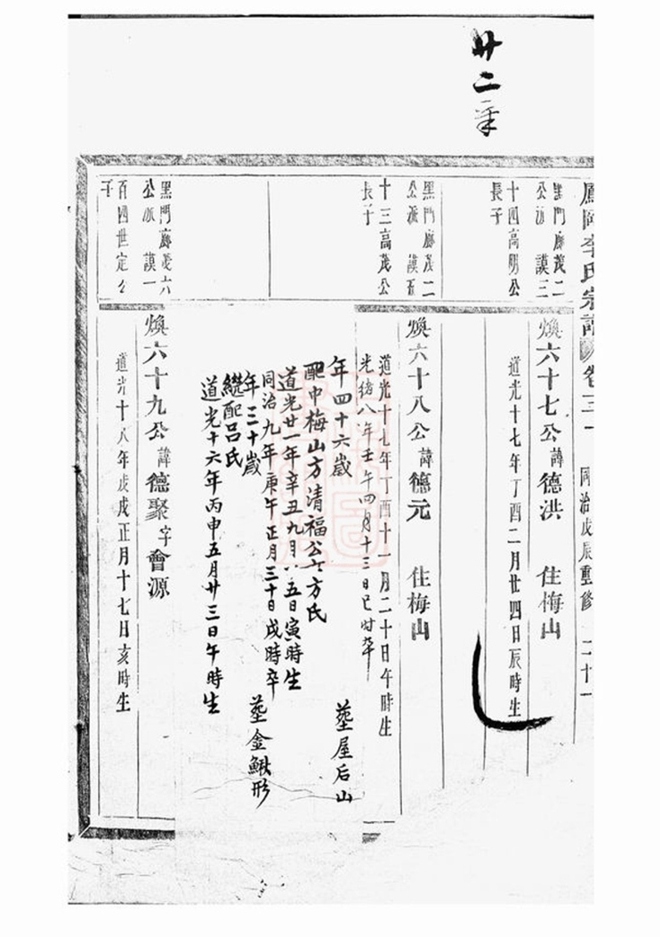 廿二
鳳岡李氏宗譜 卷三十一 同治戊辰重修 二十一
黑門廊茂二
公派 謨三
十四高朋公
長子
煥六十七公諱德洪 住梅山
道光十七年丁酉二月廿四日辰時生
黑門廊茂二
公派 謨百
十三高茂公
長子
煥六十八公諱德元 住梅山
道光十七年丁酉十一月二十日午時生
光緒八年壬午四月十三日巳时卒
年四十六歲 塟屋后山
配中梅山方清福公女方氏
道光廿一年辛丑九月 五日寅時生
同治九年庚午正月三十日戍時卒
年三十歲 塟金鰍形
繼配呂氏
道光十六年丙申五月廿三日午時生
黑門廊茂六
公派 謨一
百四世定公
子
煥六十九公諱德聚字會源
道光十八年戊戌正月十七日亥時生